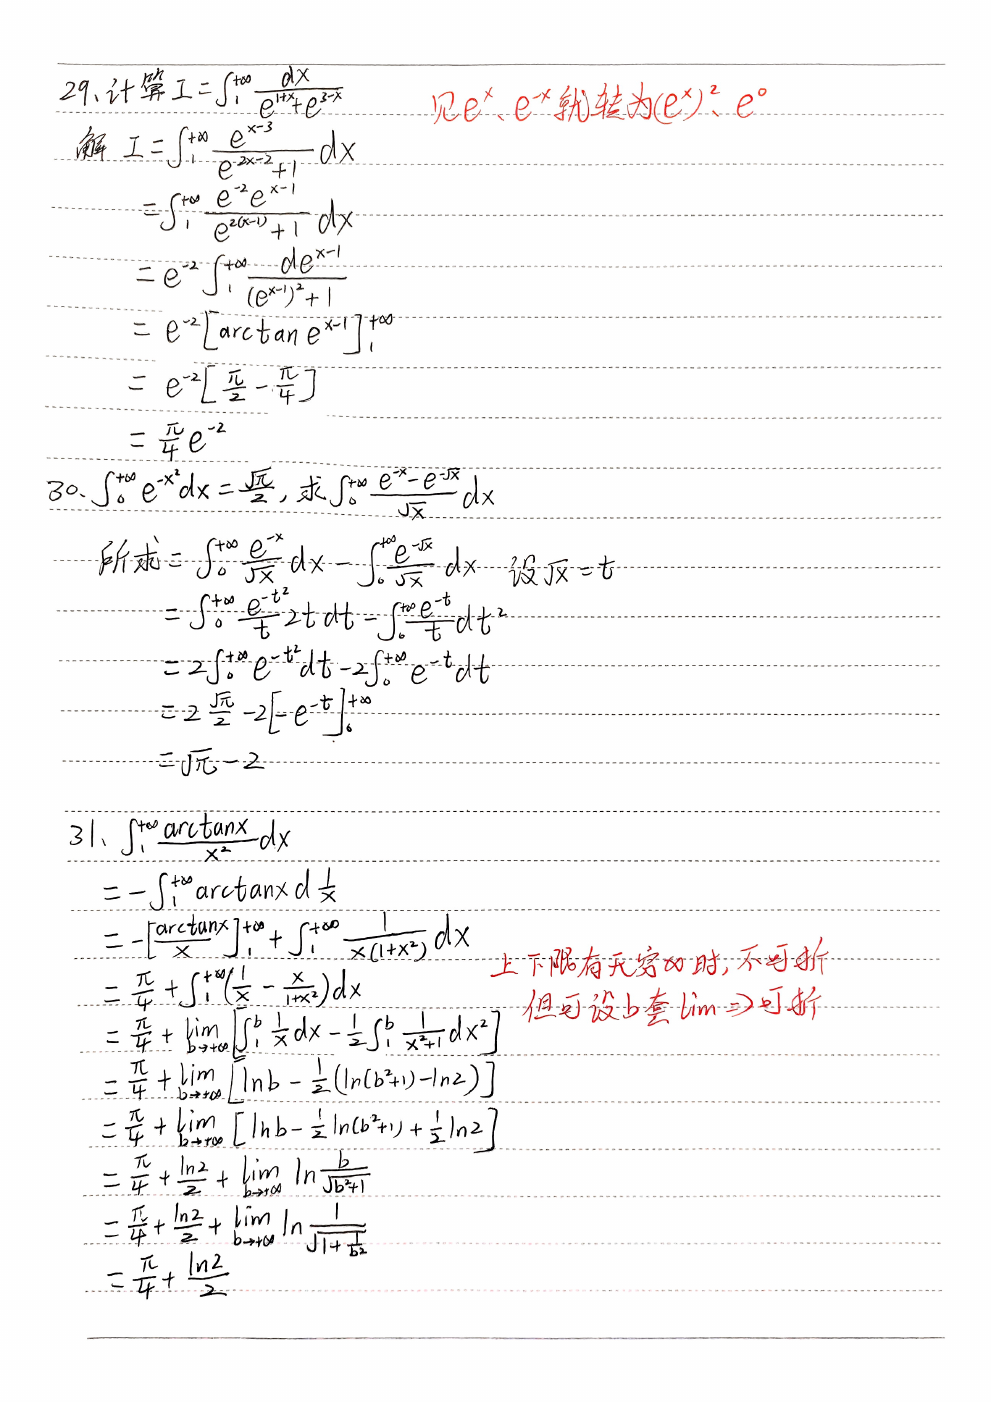 29、计算 I=∫₁^{+∞} dx/(e^{1+x}+e^{3-x})
见eˣ、e⁻ˣ就转为(eˣ)²、e⁰
解 I=∫₁^{+∞} e^{x-3}/(e^{2x-2}+1) dx
=∫₁^{+∞} e⁻²e^{x-1}/(e^{2(x-1)}+1) dx
=e⁻²∫₁^{+∞} de^{x-1}/((e^{x-1})²+1)
=e⁻²[arctan e^{x-1}]₁^{+∞}
=e⁻²[π/2-π/4]
=π/4 e⁻²
30、∫₀^{+∞} e^{-x²}dx=√π/2, 求∫₀^{+∞} (e^{-x}-e^{-√x})/√x dx
所求=∫₀^{+∞} e^{-x}/√x dx-∫₀^{+∞} e^{-√x}/√x dx 设√x=t
=∫₀^{+∞} e^{-t²}/t 2t dt-∫₀^{+∞} e^{-t}/t dt²
=2∫₀^{+∞} e^{-t²}dt-2∫₀^{+∞} e^{-t}dt
=2 √π/2-2[-e^{-t}]₀^{+∞}
=√π-2
31、∫₁^{+∞} arctanx/x² dx
=-∫₁^{+∞} arctanx d 1/x
=-[arctanx/x]₁^{+∞}+∫₁^{+∞} 1/(x(1+x²)) dx
上下限有无穷∞时,不可拆
=π/4+∫₁^{+∞}(1/x-x/(1+x²))dx
但可设b套lim⇒可拆
=π/4+lim_{b→+∞}[∫₁^b 1/x dx-1/2∫₁^b 1/(x²+1) dx²]
=π/4+lim_{b→+∞}[lnb-1/2(ln(b²+1)-ln2)]
=π/4+lim_{b→+∞}[lnb-1/2 ln(b²+1)+1/2 ln2]
=π/4+ln2/2+lim_{b→+∞} ln b/√(b²+1)
=π/4+ln2/2+lim_{b→+∞} ln 1/√(1+1/b²)
=π/4+ln2/2